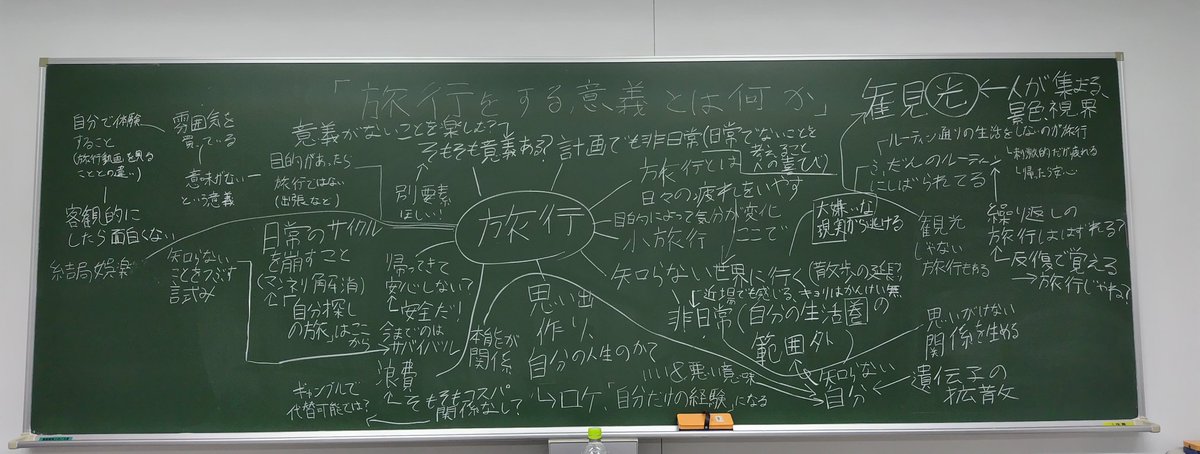 「旅行をする意義とは何か」
観光
←人が集まる、
景色、視界
自分で体験
すること
(旅行動画を見る
こととの違い)
客観的に
したら面白くない
結局娯楽
雰囲気を
買っている
意味がない
という意義
意義がないことを楽しむ?
そもそも意義ある?
目的があったら
旅行ではない
(出張など)
別要素
ほしい!
計画でも非日常(日常でないことを
考えること
への喜び)
旅行とは
日々の疲れをいやす
目的によって気分が変化
小旅行
ここで
旅行
ルーティン通りの生活をしないのが旅行
刺激的だが疲れる
帰ったら安心
ふだんのルーティーン
にしばられてる
大嫌いな
現実から逃げる
観光
じゃない
旅行もある
繰り返しの
旅行ははずれる?
←反復で覚える
→旅行じゃね?
知らない
ことをつぶす
試み
日常のサイクル
を崩すこと
(マンネリ解消)
自分探し
の旅」はここ
から
帰ってきて
安心しない?
安全だ!
今までのは
サバイバル
本能が
関係
浪費
そもそもコスパ
関係なし?
ギャンブルで
代替可能では?
思い出
作り、
自分の人生のかて
↳ロケ、「自分だけの経験」になる
知らない世界に行く(散歩の延長?
近場でも感じる、キョリはかんけい無
非日常(自分の生活圏の
範囲外
いい&悪い意味
知らない
自分
思いがけない
関係を生める
遺伝子の
拡散